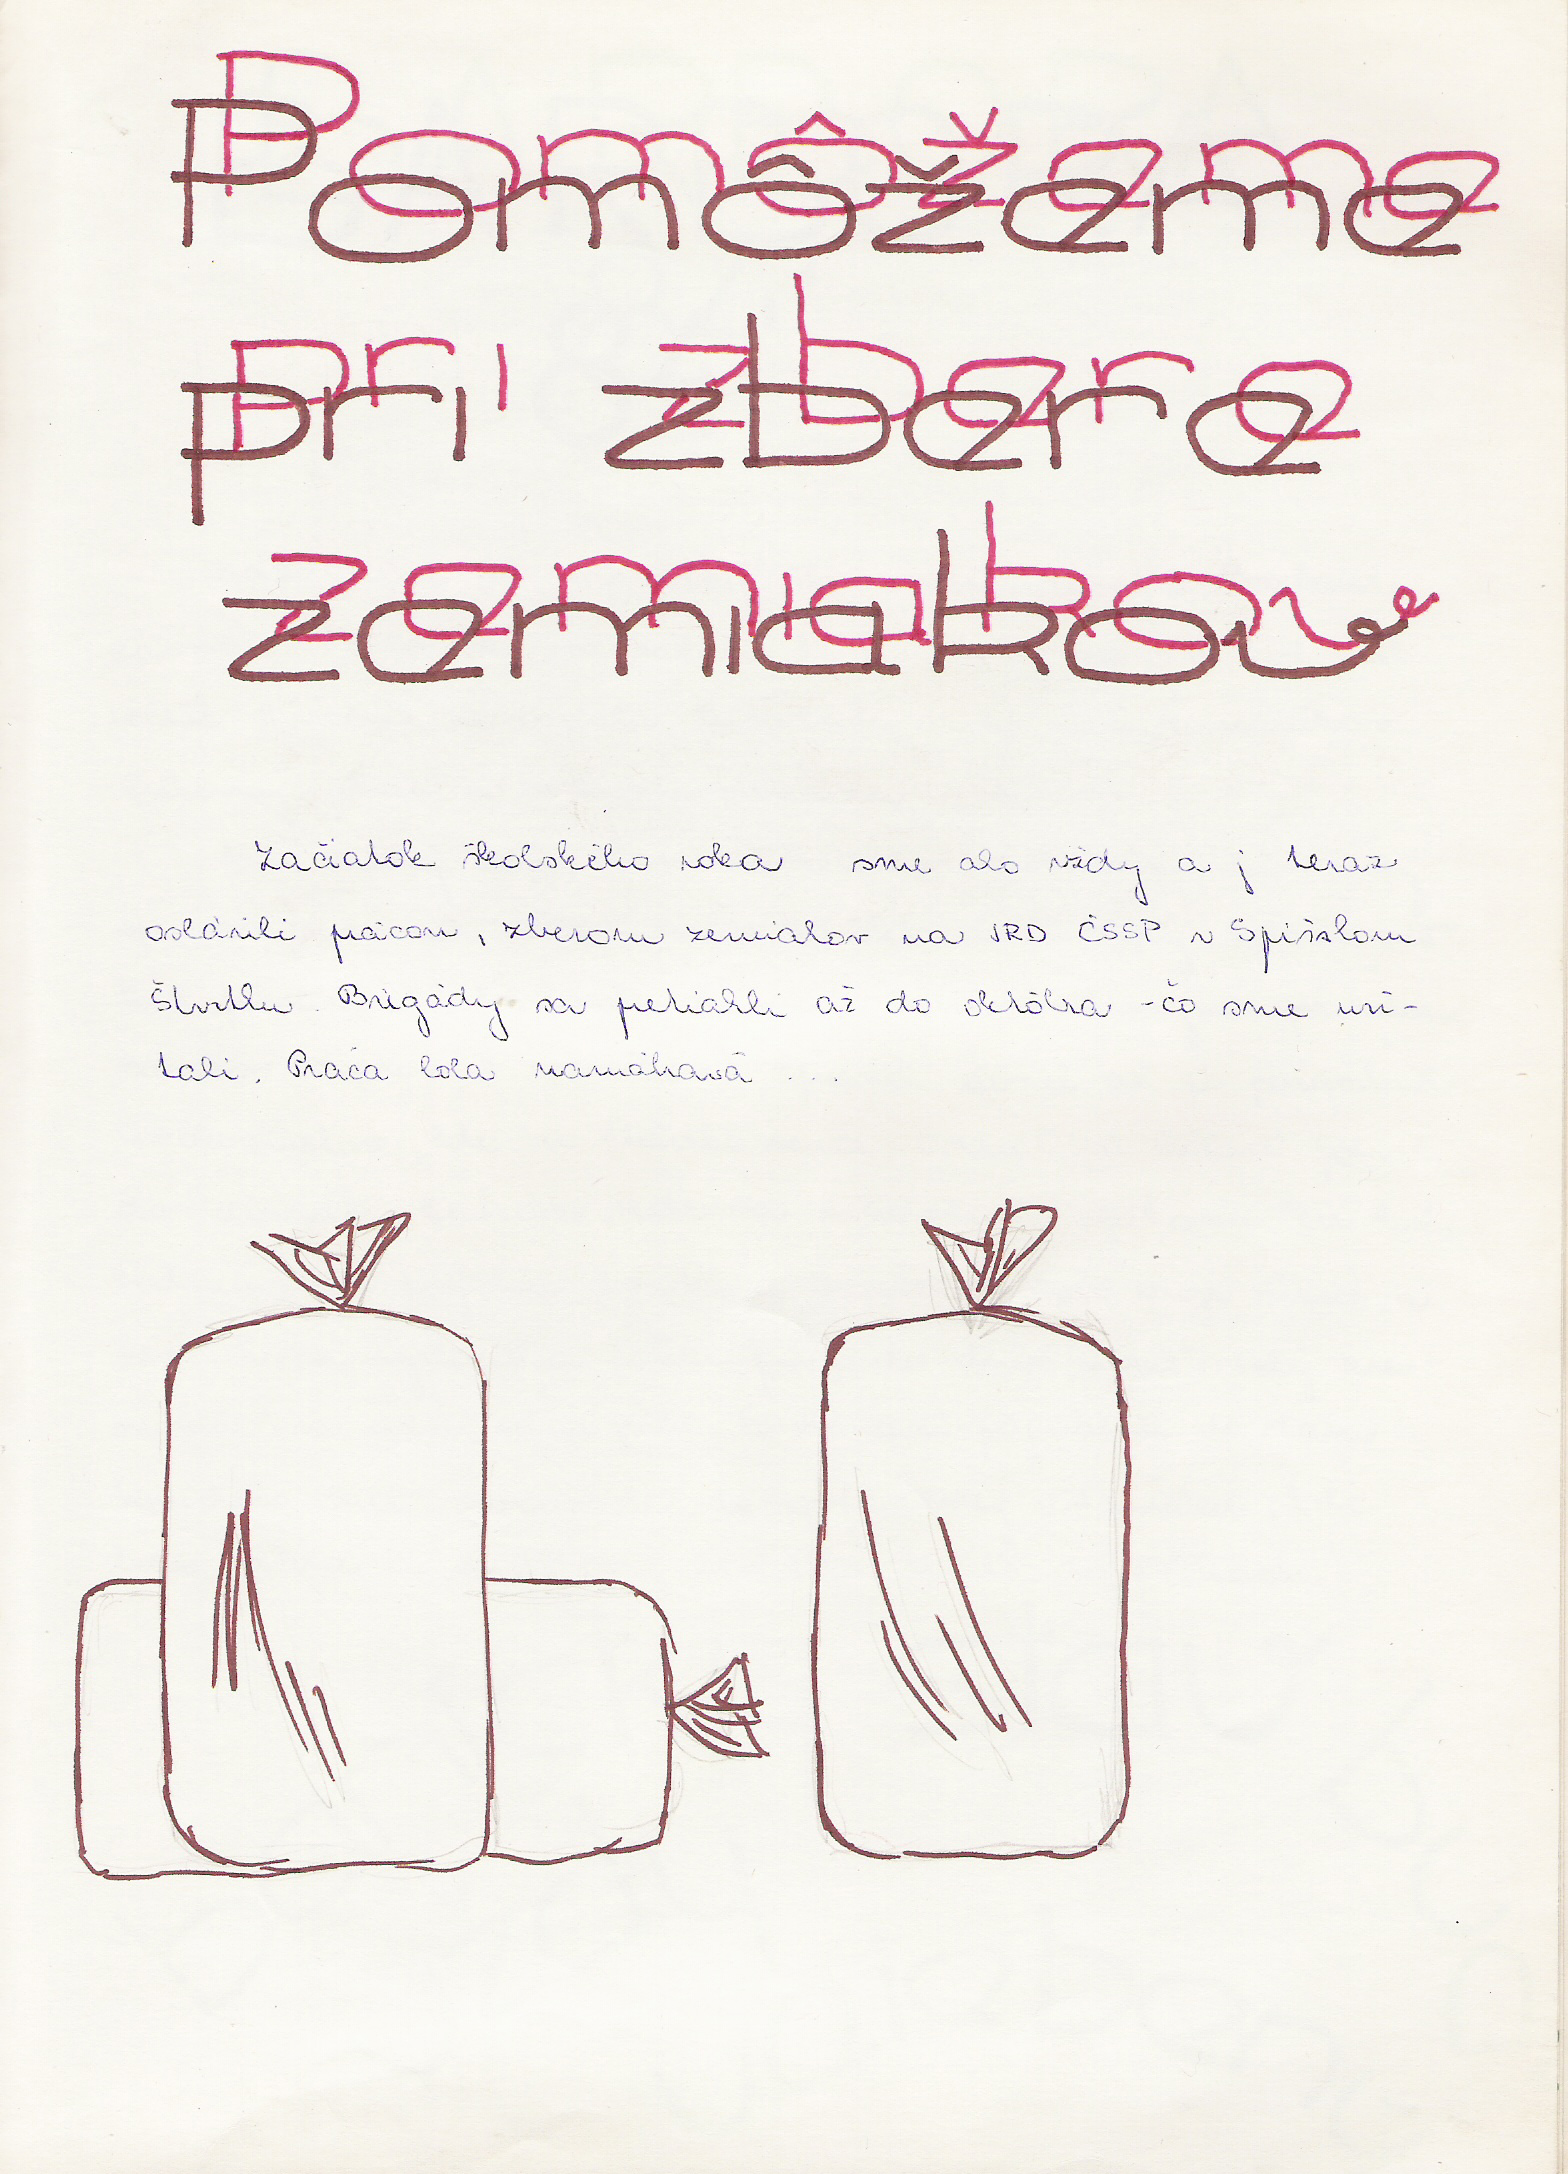 Pomôžeme
pri zbere
zemiakov
Začiatok školského roka sme ako vždy a j teraz
oslávili prácou, zberom zemiakov na JRD ČSSP v Spišskom
Štvrtku. Brigády sa pretiahli až do októbra - čo sme uví-
tali. Práca bola namáhavá ...